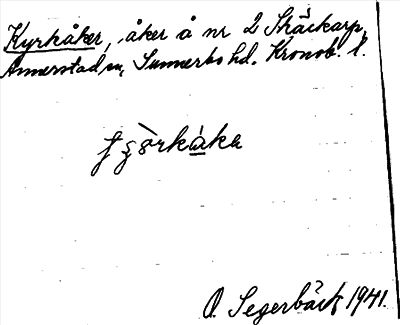 Kyrkåker, åker å nr 2 Skäckarp,
Annerstad sn, Sunnerbo hd. Kronob. l.
O. Segerbäck 1941.